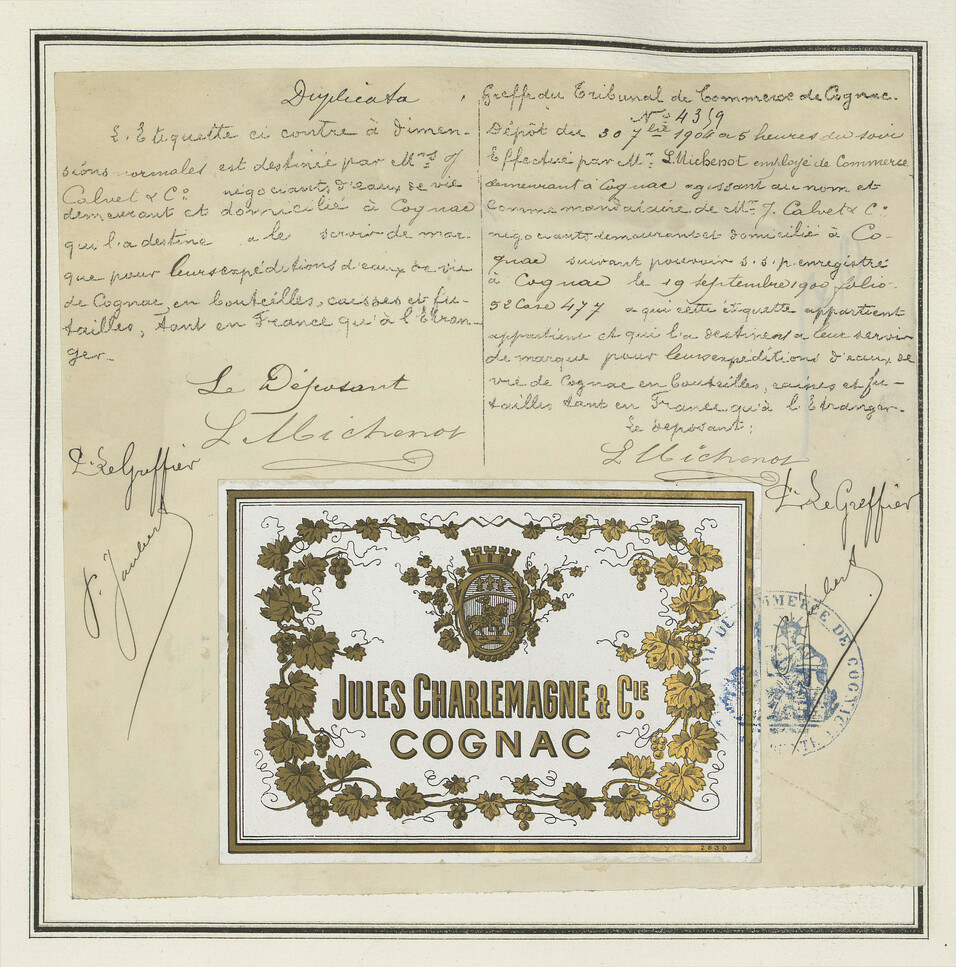 Duplicata
L'Etiquette ci contre à dimen-
sions normales est destinée par Mrs J.
Calvet & Co. négociants d'eaux de vie
demeurant et domicilié à Cognac
qui l'a destine a le servir de mar-
que pour leurs expéditions d'eaux de vie
de Cognac, en bouteilles, caisses et fu-
tailles, tant en France qu'à l'Etran-
ger.-
Le Déposant
L Michenot
P. Le Greffier
P. Jaubert
Greffe du Tribunal de Commerce de Cognac.
No 4359
Dépôt du 30 7bre 1904 a 5 heures du soir
Effectué par Mr. L. Michenot employé de Commerce
demeurant à Cognac agissant au nom et
comme mandataire de Mrs J. Calvet & Co.
négociants demeurant et domicilié à Co-
gnac suivant pouvoir s.s.p. enregistré
à Cognac le 19 septembre 1900 folio
52 Case 477 a qui cette étiquette appartient
appartient et qui l'a destinent a leur servir
de marque pour leurs expéditions d'eaux de
vie de Cognac en bouteilles, caisses et fu-
tailles tant en France qu'à l'Etranger.
Le déposant:
L Michenot
P. Le Greffier
JULES CHARLEMAGNE & CIE.
COGNAC
2830
DE COMMERCE DE COGNAC